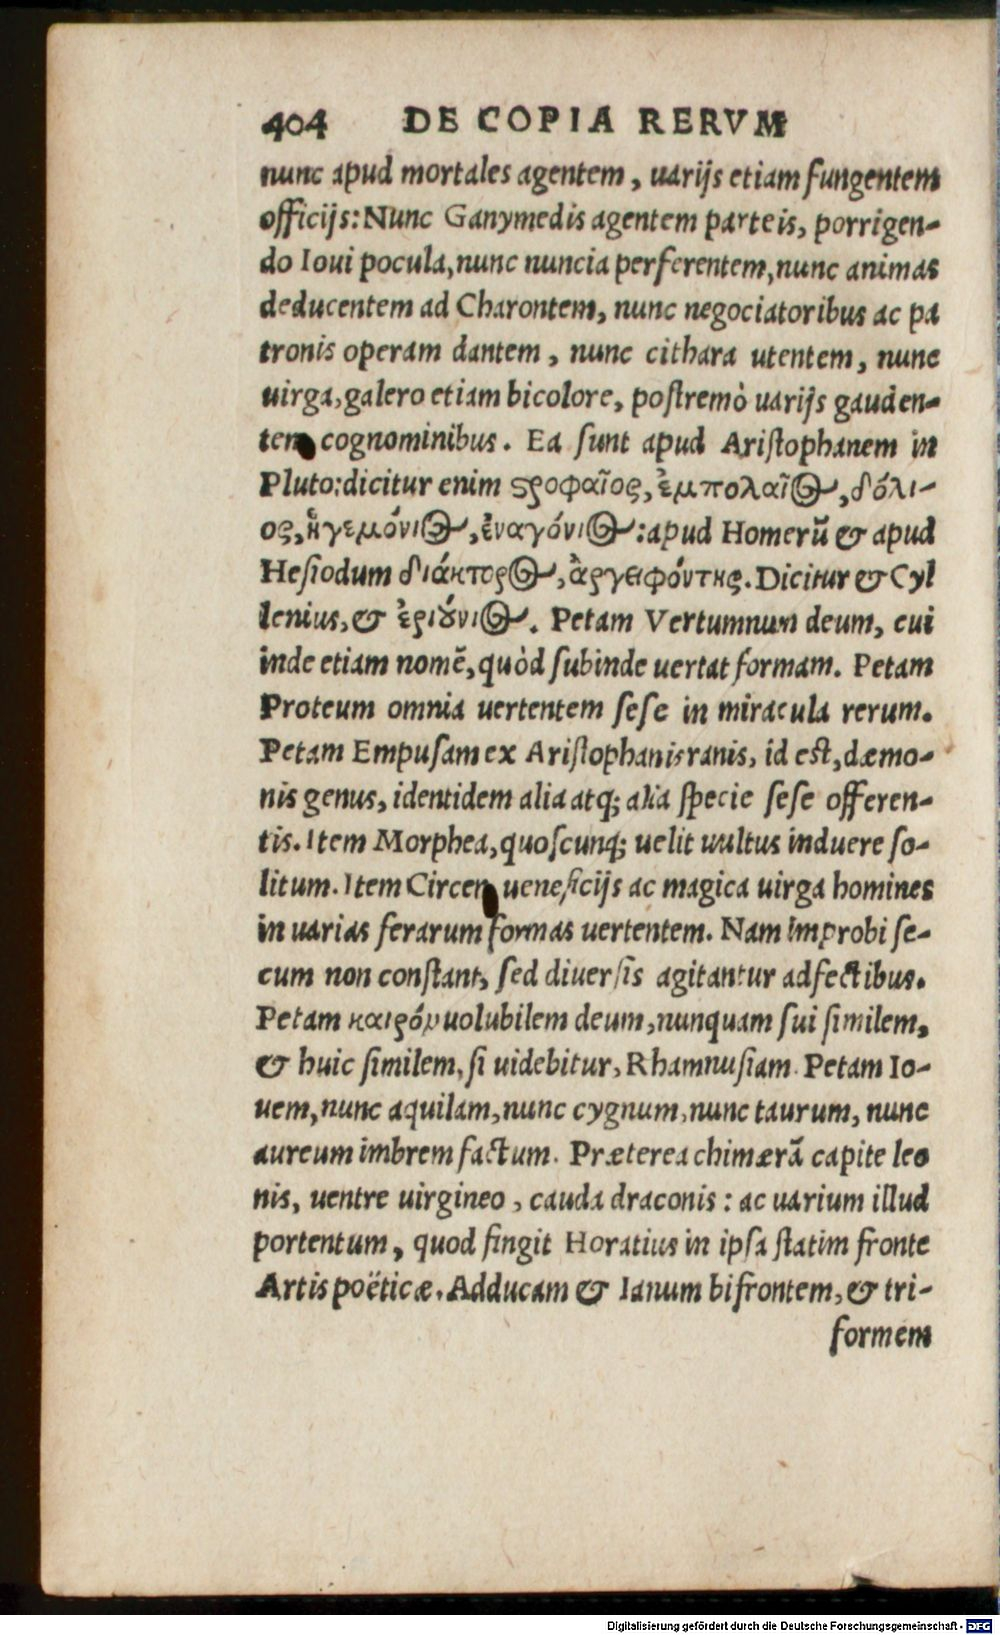 404 DE COPIA RERVM
nunc apud mortales agentem, uarijs etiam fungentem
officijs: Nunc Ganymedis agentem parteis, porrigen-
do Ioui pocula, nunc nuncia perferentem, nunc animas
deducentem ad Charontem, nunc negociatoribus ac pa
tronis operam dantem, nunc cithara utentem, nunc
uirga, galero etiam bicolore, postremò uarijs gauden-
tem cognominibus. Ea sunt apud Aristophanem in
Pluto: dicitur enim ςροφαῖος, ἐμπολαῖος, δόλι-
ος, ἡγεμόνιος, ἐναγόνιος: apud Homerū & apud
Hesiodum διάκτορος, ἀργειφόντης. Dicitur & Cyl
lenius, & ἐριούνιος. Petam Vertumnum deum, cui
inde etiam nomē, quòd subinde uertat formam. Petam
Proteum omnia uertentem sese in miracula rerum.
Petam Empusam ex Aristophanis ranis, id est, dæmo-
nis genus, identidem alia atq; alia specie sese offeren-
tis. Item Morphea, quoscunq; uelit uultus induere so-
litum. Item Circen ueneficijs ac magica uirga homines
in uarias ferarum formas uertentem. Nam improbi se-
cum non constant, sed diuersis agitantur adfectibus.
Petam καιρόν uolubilem deum, nunquam sui similem,
& huic similem, si uidebitur, Rhamnusiam. Petam Io-
uem, nunc aquilam, nunc cygnum, nunc taurum, nunc
aureum imbrem factum. Præterea chimærā capite leo
nis, uentre uirgineo, cauda draconis: ac uarium illud
portentum, quod fingit Horatius in ipsa statim fronte
Artis poëticæ. Adducam & Ianum bifrontem, & tri-
formem
Digitalisierung gefördert durch die Deutsche Forschungsgemeinschaft - DFG